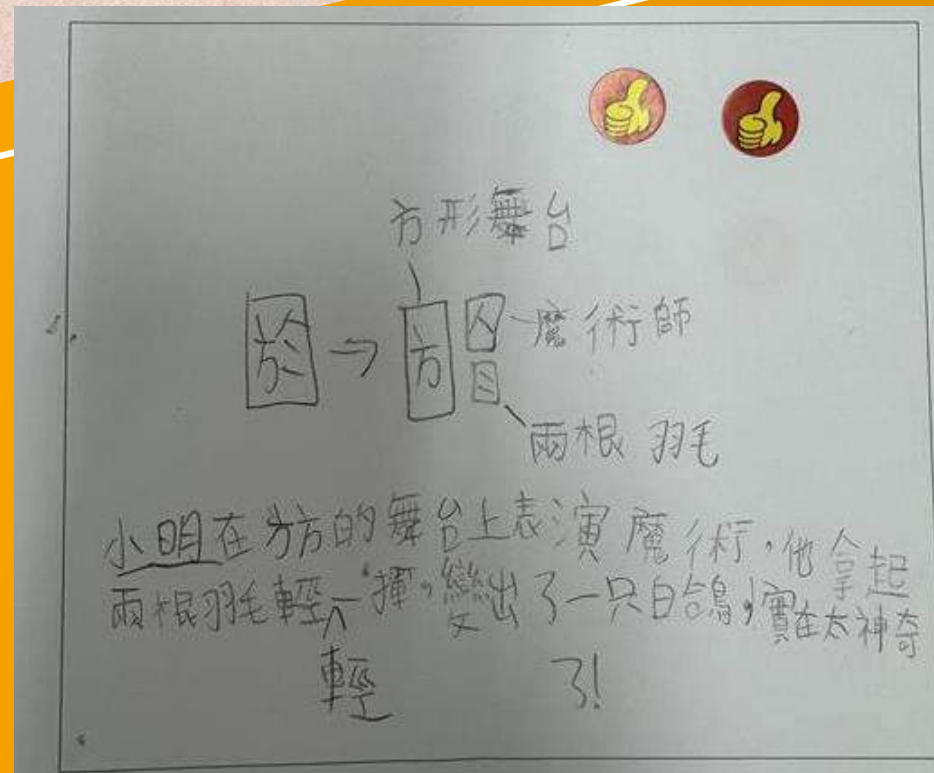 方形舞台
於→方人魔術師
⺀兩根羽毛
小明在方方的舞台上表演魔術,他拿起
兩根羽毛輕一揮,變出了一只白鴿,實在太神奇
輕 了!